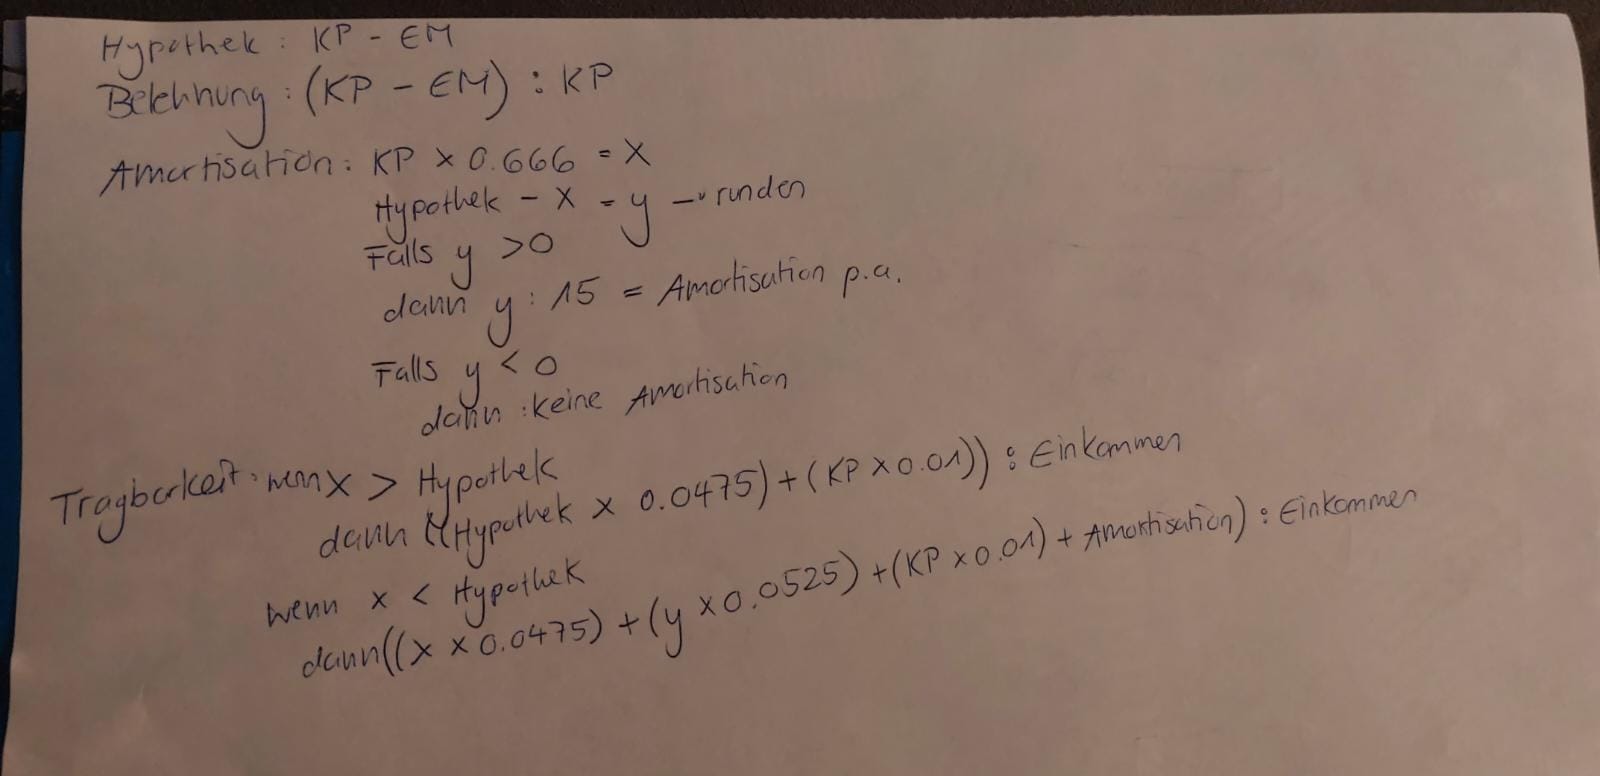 Hypothek : KP - EM
Belehnung : (KP - EM) : KP
Amortisation : KP x 0.666 = X
Hypothek - X = y → runden
Falls y > 0
dann y : 15 = Amortisation p.a.
Falls y < 0
dann : keine Amortisation
Tragbarkeit : wenn x > Hypothek
dann ((Hypothek x 0.0475) + (KP x 0.01)) : Einkommen
wenn x < Hypothek
dann ((x x 0.0475) + (y x 0.0525) + (KP x 0.01) + Amortisation) : Einkommen